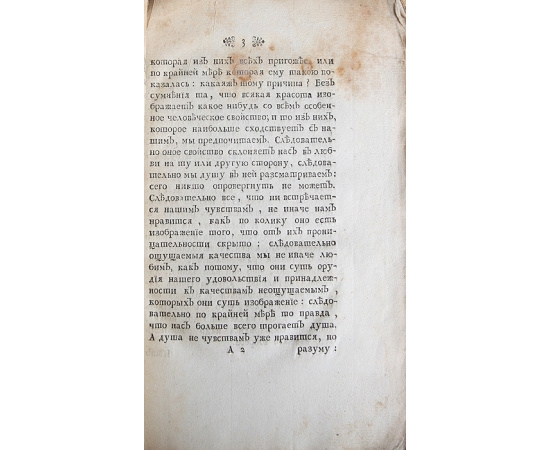 3
которая изъ нихъ всѣхъ пригожѣе, или
по крайней мѣрѣ которая ему такою по-
казалась: какаяжъ тому причина? Безъ
сумнѣнія та, что всякая красота изо-
бражаетъ какое нибудь со всѣмъ особен-
ное человѣческое свойство; и то изъ нихъ,
которое наибольше сходствуетъ съ на-
шимъ, мы предпочитаемъ. Слѣдователь-
но оное свойство склоняетъ насъ въ люб-
ви на ту или другую сторону, слѣдова-
тельно мы душу въ ней разсматриваемъ:
сего никто опровергнуть не можетъ.
Слѣдовательно все, что ни встрѣчается
нашимъ чувствамъ, не иначе намъ
нравится, какъ по колику оно есть
изображеніе того, что отъ ихъ прони-
цательности скрыто: слѣдовательно
ощущаемыя качества мы не иначе лю-
бимъ, какъ потому, что они суть ору-
дія нашего удовольствія и принадлеж-
ности къ качествамъ неощущаемымъ,
которыхъ они суть изображеніе: слѣдо-
вательно по крайней мѣрѣ то правда,
что насъ больше всего трогаетъ душа.
А душа не чувствамъ уже нравится, но
А 2 разуму: